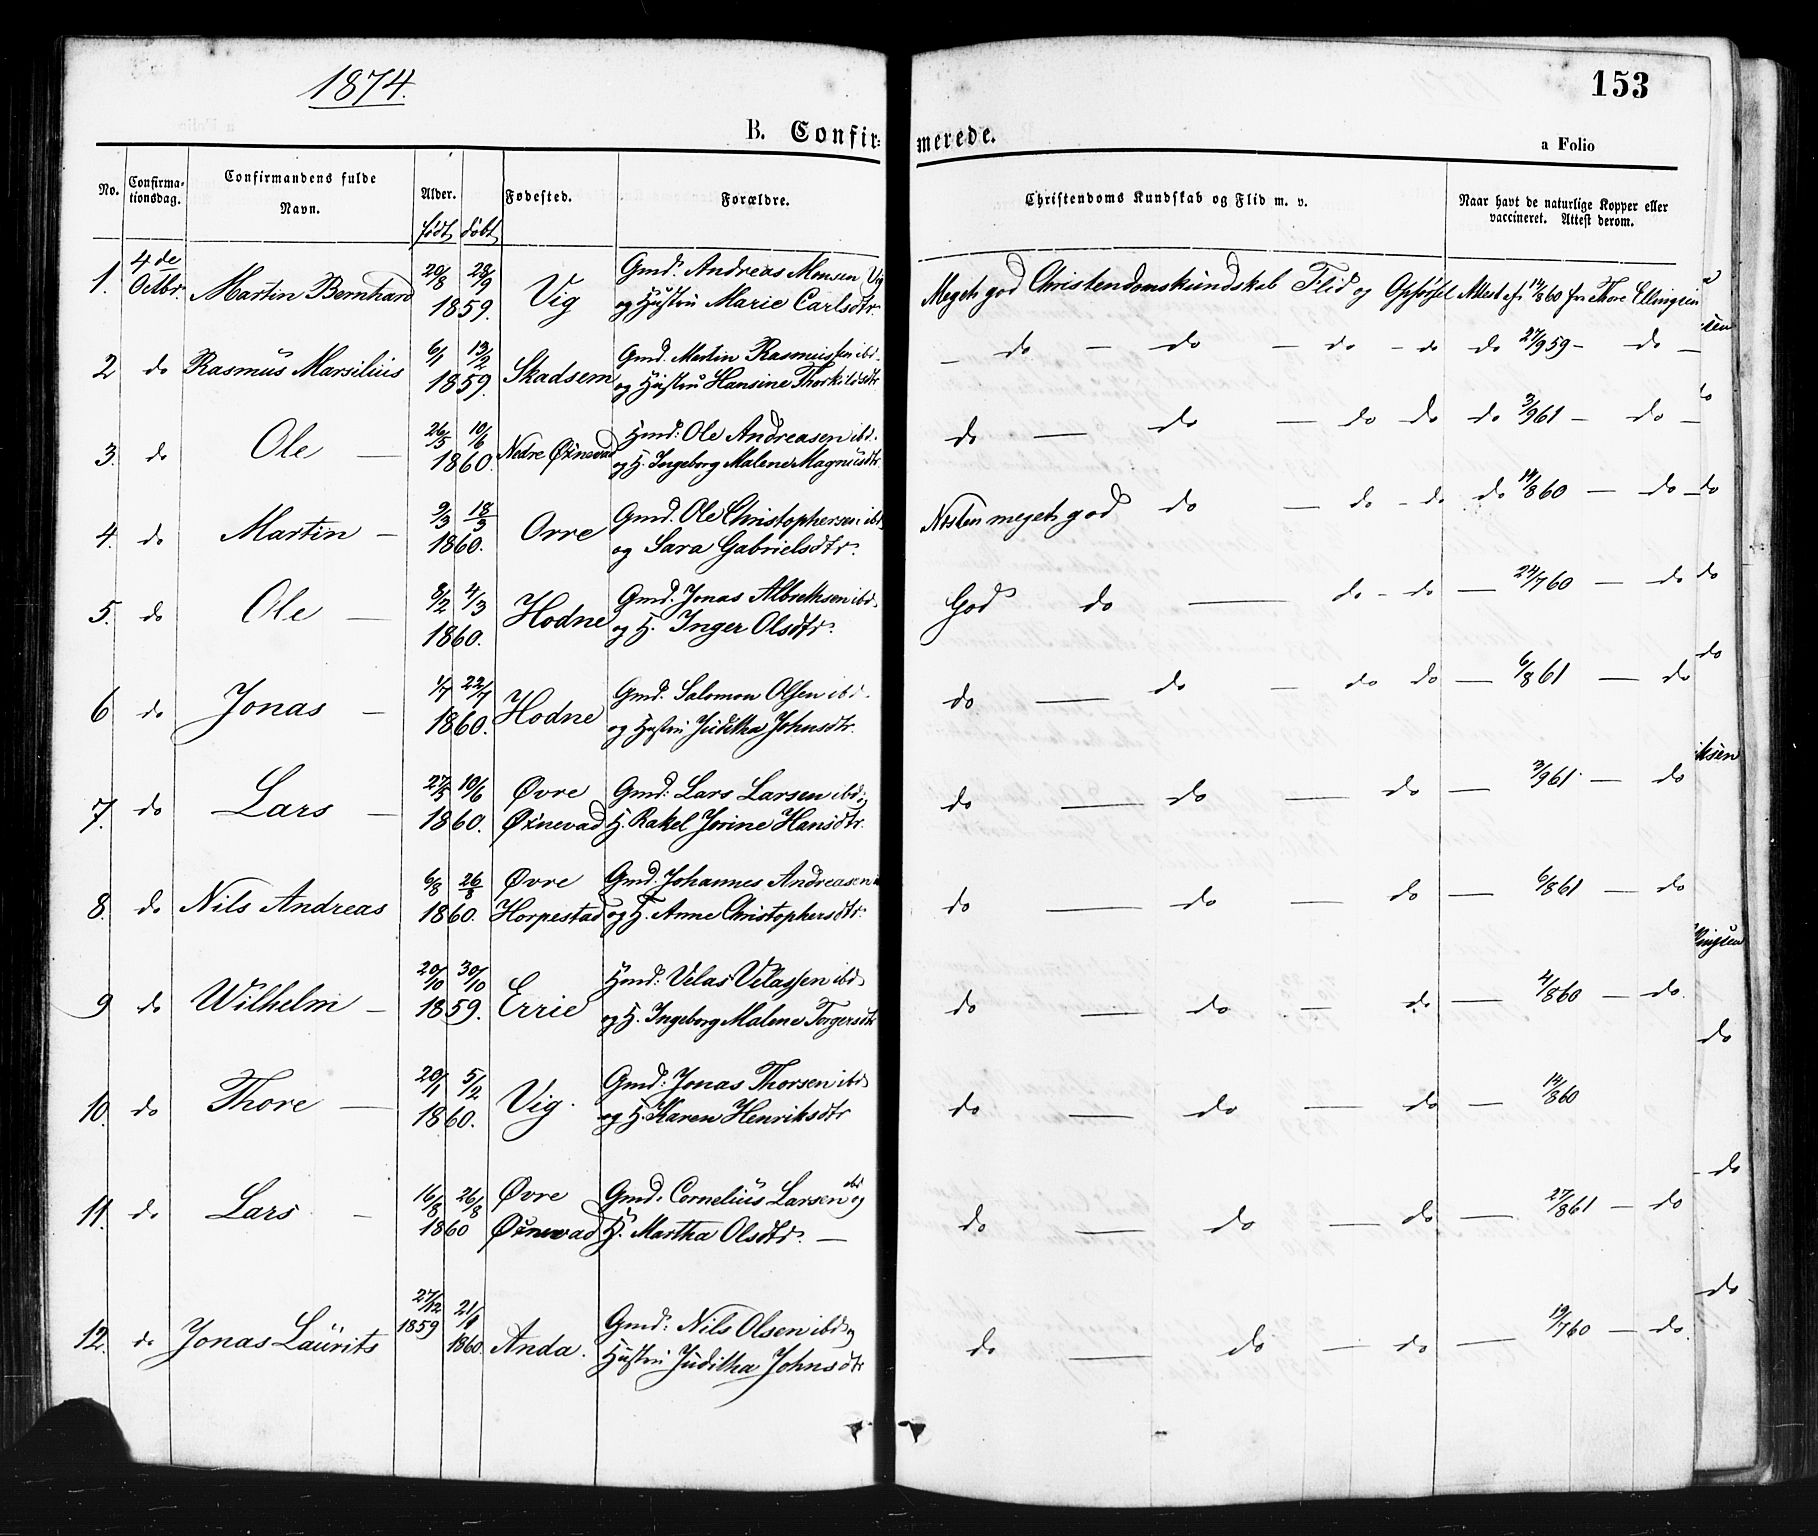 1874.
153
B. Confir-
merede.
a Folio
No. Confirma-tionsdag. Confirmandens fulde Navn. Alder. Fødested. Forældre. Christendoms Kundskab og Flid m. v. Naar havt de naturlige Kopper eller vaccineret. Attest derom.
født døbt
1. 4de Octbr. Martin Bernhard 20/8 28/9 1859. Vig Gmd. Andreas Monsen Vig
og Hustru Marie Carlsdtr. Meget god Christendomskundskab Flid og Opførsel Attest af 14/8 60 fra Thore Ellingsen
2 do Rasmus Marsilius 6/1 13/2 1859. Skadsem Gmd. Martin Rasmussen ibd.
og Hustru Hansine Thorkildsdtr. — do — do — do - do do 27/9 59 - do —
3. do Ole — 26/5 10/6 1860. Nedre Øxnevad Hmd: Ole Andreasen ibd.
og H. Ingeborg Malene Magnusdtr. do — do — do do do 3/9 61 - do —
4. do Martin — 9/3 18/3 1860. Orre Gmd. Ole Christophersen ibd
og Sara Gabrielsdtr. Næsten meget god do — do - do do 14/8 60 — do —
5. do Ole — 8/2 4/3 1860. Hodne Gmd. Jonas Albrektsen ibd.
og H. Inger Olsdtr. God do — do - do — 24/7 60 — do
6 do Jonas — 1/7 22/7 1860. Hodne Gmd. Salomon Olsen ibd.
og Hustru Juditha Johnsdtr. do — do — do do — 6/8 61 — do
7. do Lars — 27/5 10/6 1860. Øvre Øxnevad Gmd: Lars Larsen ibd. og
H. Rakel Jorine Hansdtr. do — do — do — 3/9 61. — do
8. do Nils Andreas 6/8 26/8 1860. Øvre Horpestad Gmd. Johannes Andreasen
og H. Anne Christophersdtr. do — do — do — 6/8 61 — do
9 do Wilhelm — 20/10 30/10 1859. Errie Hmd: Velas Velassen ibd.
og H. Ingeborg Malene Torgersdtr do — do — do — 4/8 60 — do.
10. do Thore — 20/1 5/2 1860. Vig. Gmd: Jonas Thorsen ibd.
og H. Karen Henriksdtr do — do — do — 14/8 60
11. do Lars. — 16/8 26/8 1860 Øvre Øxnevad Gmd. Cornelius Larsen ibd og
H. Martha Olsdtr. — do — do — do — 27/8 61 — do
12. do Jonas Laurits 27/12 1859 21/1 1860. Anda. Gmd: Nils Olsen ibd. og
Hustru Juditha Johnsdtr do — do — do — 19/7 60 — do.
sen
do
do
do
do
iksen
llingsen
do
do
do